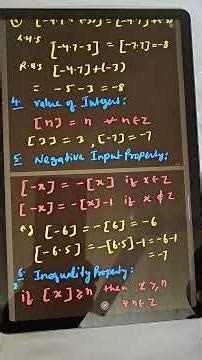 L.H.S [-4.7-3] = [-7.7] = -8
R.H.S [-4.7]+(-3)
= -5-3 = -8
4. value of Integers:
[n] = n ∀ n∈Z
[3] = 3, [-7] = -7
5. Negative Input Property:
[-x] = -[x] if x∈Z
[-x] = -[x]-1 if x∉Z
eg [-6] = -[6] = -6
[-6.5] = -[6.5]-1 = -6-1
= -7
6. Inequality Property:
if [x]≥n then x≥n
∀n∈Z